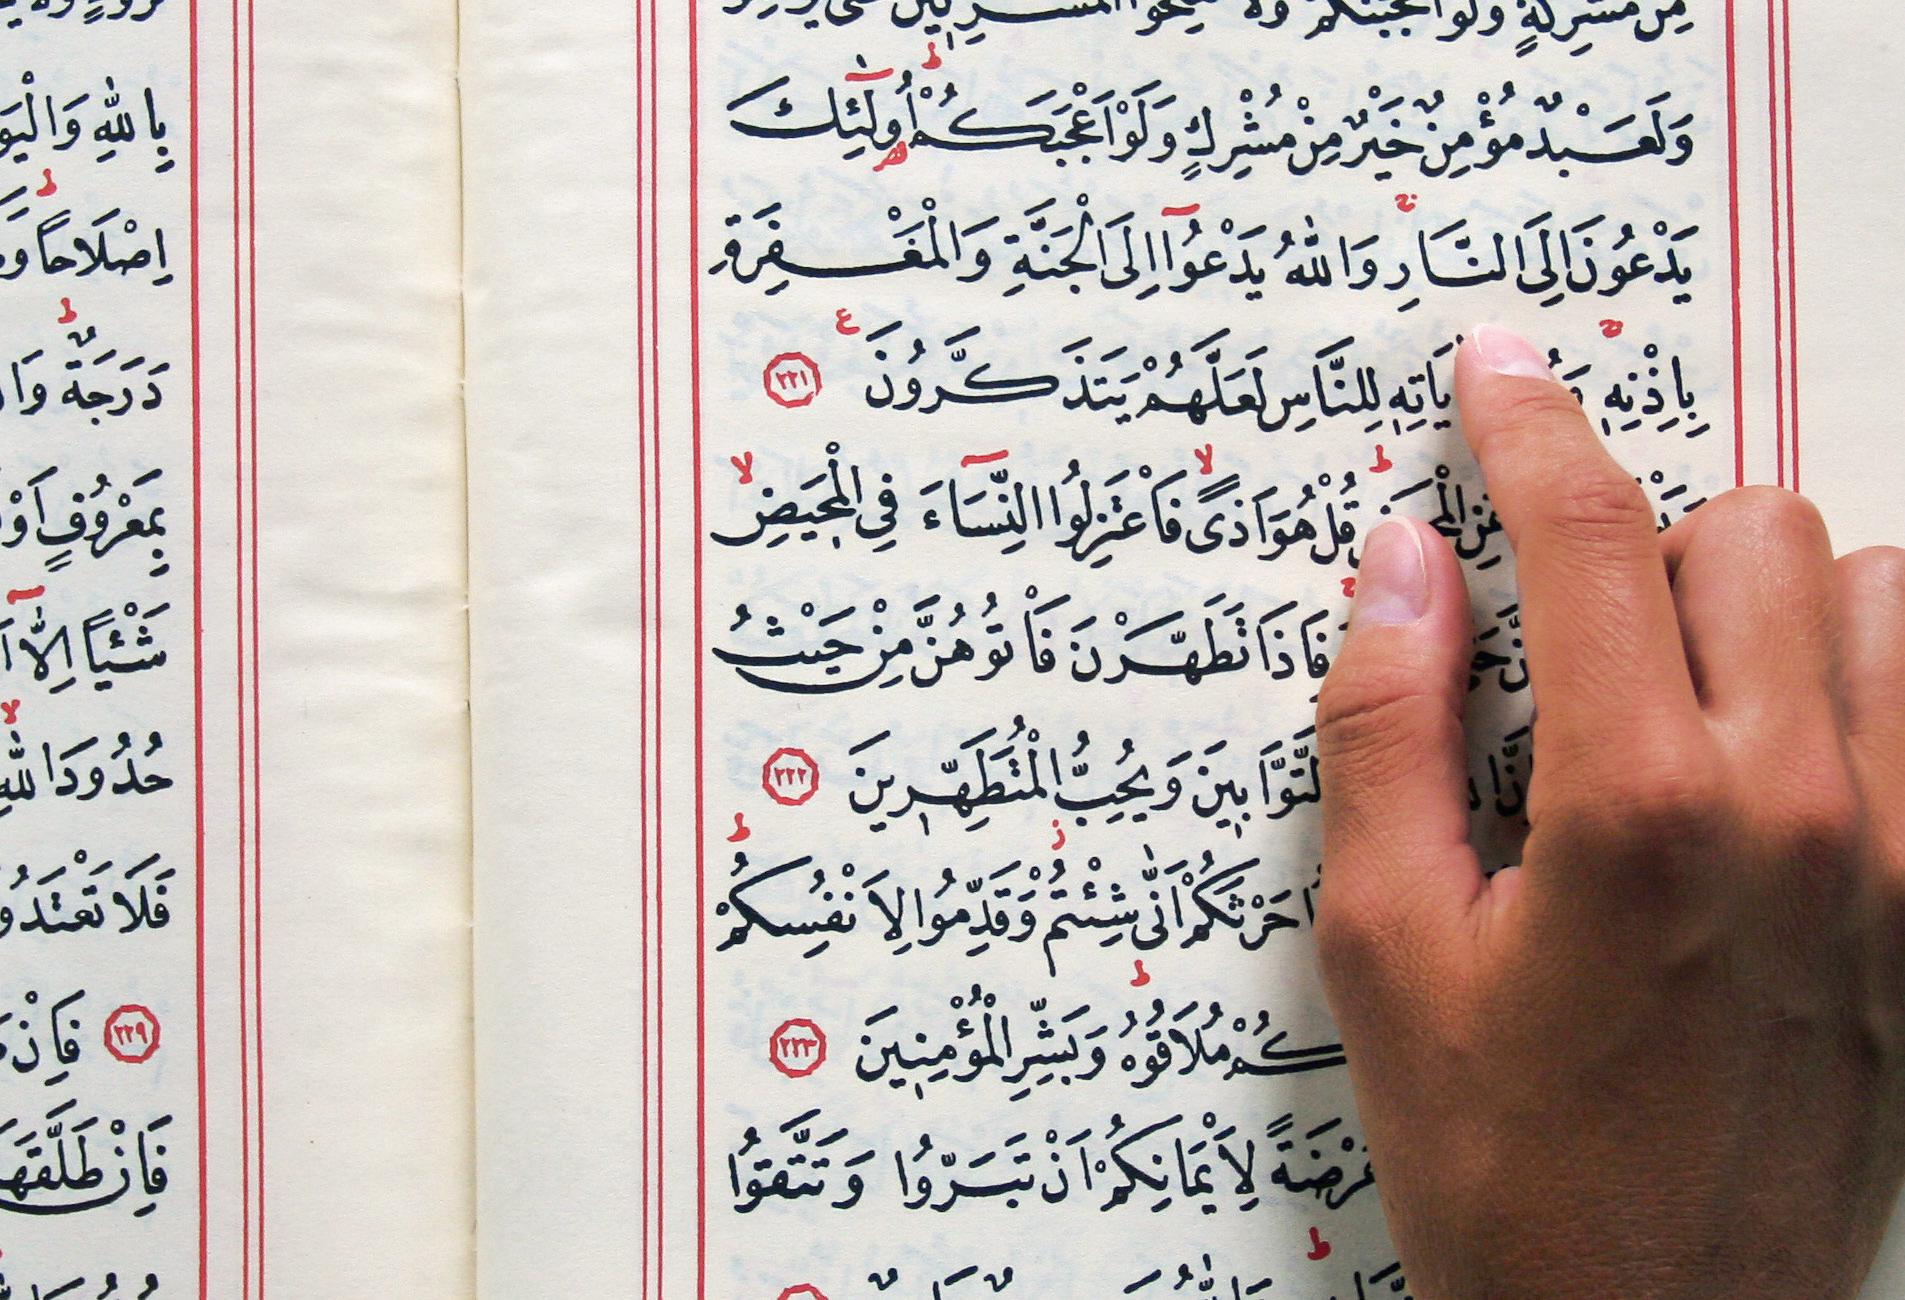 مِنْ مُشْرِكَةٍ وَلَوْ اَعْجَبَتْكُمْ وَلَا تُنْكِحُوا الْمُشْرِكِينَ حَتّٰى يُؤْمِنُوا
وَلَعَبْدٌ مُؤْمِنٌ خَيْرٌ مِنْ مُشْرِكٍ وَلَوْ اَعْجَبَكُمْ اُولٰٓئِكَ
يَدْعُونَ اِلَى النَّارِ وَاللّٰهُ يَدْعُوٓا اِلَى الْجَنَّةِ وَالْمَغْفِرَةِ
بِاِذْنِهٖ اٰيَاتِهٖ لِلنَّاسِ لَعَلَّهُمْ يَتَذَكَّرُونَ ٢٢١
عَنِ الْمَحِيضِ قُلْ هُوَ اَذًى فَاعْتَزِلُوا النِّسَٓاءَ فِي الْمَحِيضِ
فَاِذَا تَطَهَّرْنَ فَأْتُوهُنَّ مِنْ حَيْثُ
التَّوَّابِينَ وَيُحِبُّ الْمُتَطَهِّرِينَ ٢٢٢
حَرْثَكُمْ اَنّٰى شِئْتُمْ وَقَدِّمُوا لِاَنْفُسِكُمْ
مُلَاقُوهُ وَبَشِّرِ الْمُؤْمِنِينَ ٢٢٣
عُرْضَةً لِاَيْمَانِكُمْ اَنْ تَبَرُّوا وَتَتَّقُوا
بِاللّٰهِ
اِصْلَاحًا
دَرَجَةٌ
بِمَعْرُوفٍ اَوْ
شَيْـًٔا اِلَّٓا
حُدُودَ اللّٰهِ
فَلَا
٢٢٩ فَاِنْ
فَاِنْ طَلَّقَهَا